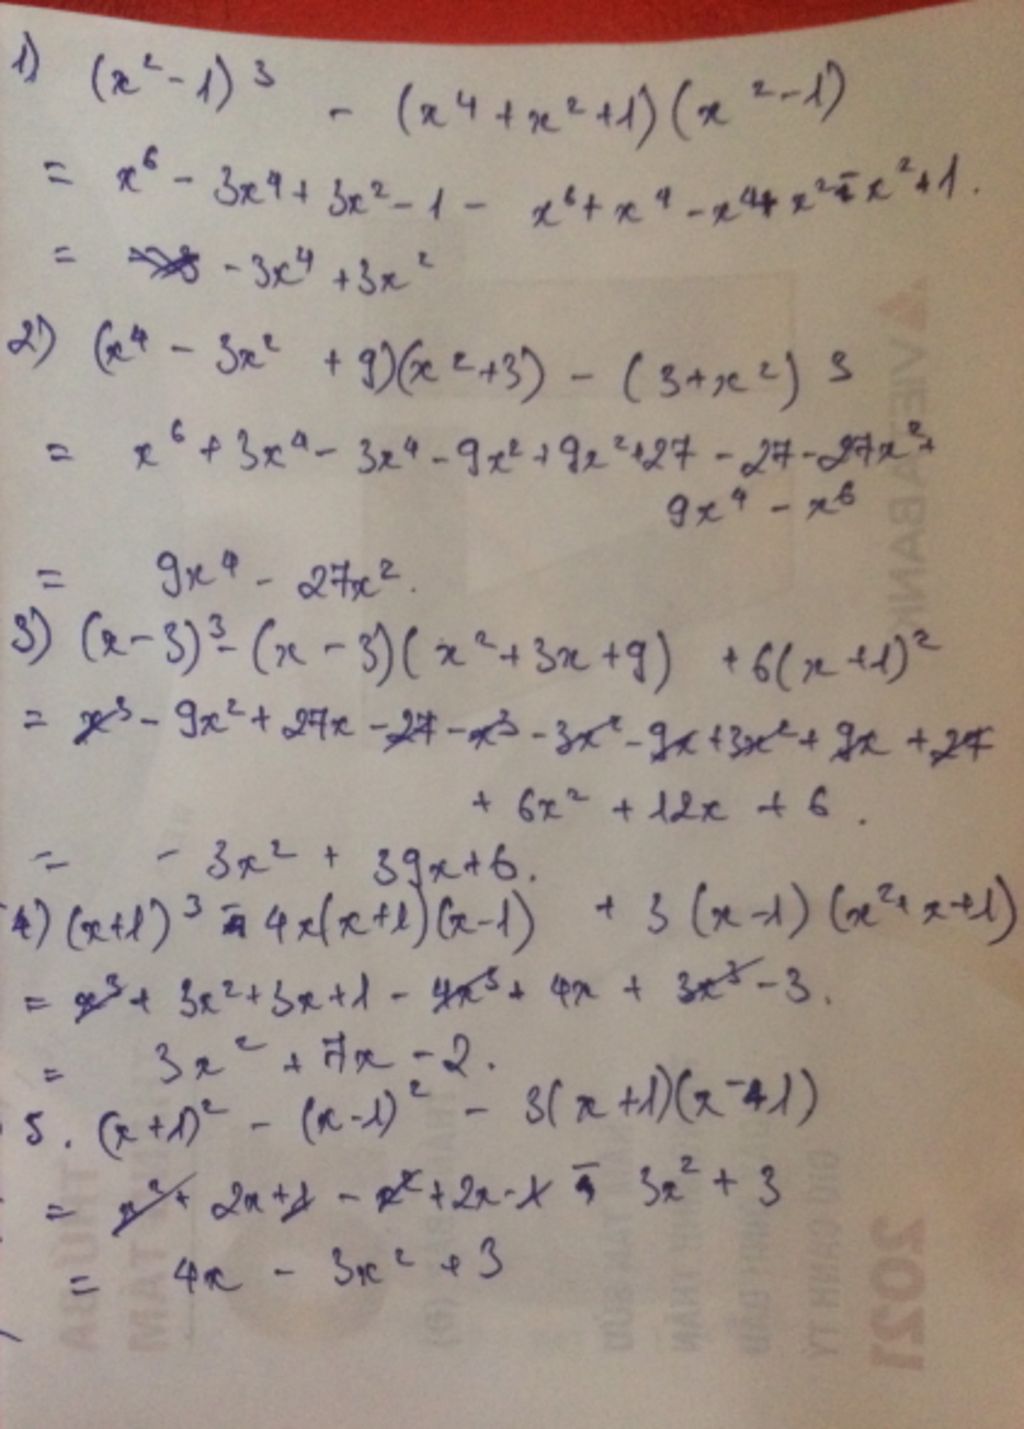 1) (x² - 1)³ - (x⁴ + x² + 1)(x² - 1)
= x⁶ - 3x⁴ + 3x² - 1 - x⁶ + x⁴ - x⁴ + x² - x² + 1.
= - 3x⁴ + 3x²
2) (x⁴ - 3x² + 9)(x² + 3) - (3 + x²)³
= x⁶ + 3x⁴ - 3x⁴ - 9x² + 9x² + 27 - 27 - 27x² +
9x⁴ - x⁶
= 9x⁴ - 27x².
3) (x - 3)³ - (x - 3)(x² + 3x + 9) + 6(x + 1)²
= x³ - 9x² + 27x - 27 - x³ - 3x² - 9x + 3x² + 9x + 27
+ 6x² + 12x + 6.
= - 3x² + 39x + 6.
4) (x+1)³ - 4x(x+1)(x-1) + 3(x-1)(x² + x + 1)
= x³ + 3x² + 3x + 1 - 4x³ + 4x + 3x³ - 3.
= 3x² + 7x - 2.
5. (x+1)² - (x-1)² - 3(x+1)(x-1)
= x² + 2x + 1 - x² + 2x - 1 - 3x² + 3
= 4x - 3x² + 3
2021